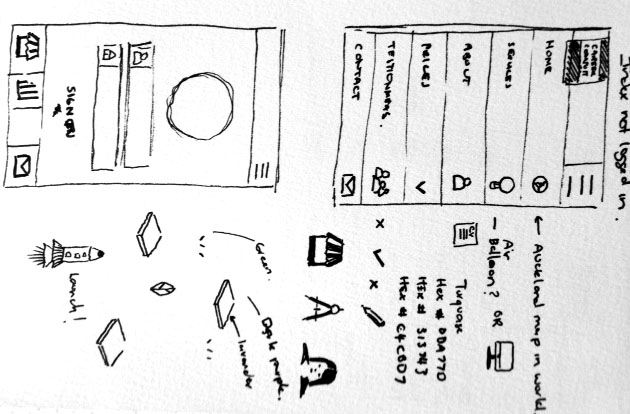 Index not logged in.
CAREER
COMPLETE
HOME
SERVICES
ABOUT
PRICES
TESTIMONIALS.
CONTACT
← Auckland map in world.
- Air
Balloon? OR
CV
Turquoise
Hex #
Hex # 313743
Hex # C4C8D7
SIGN
Green.
Dark purple.
lavender
Launch!